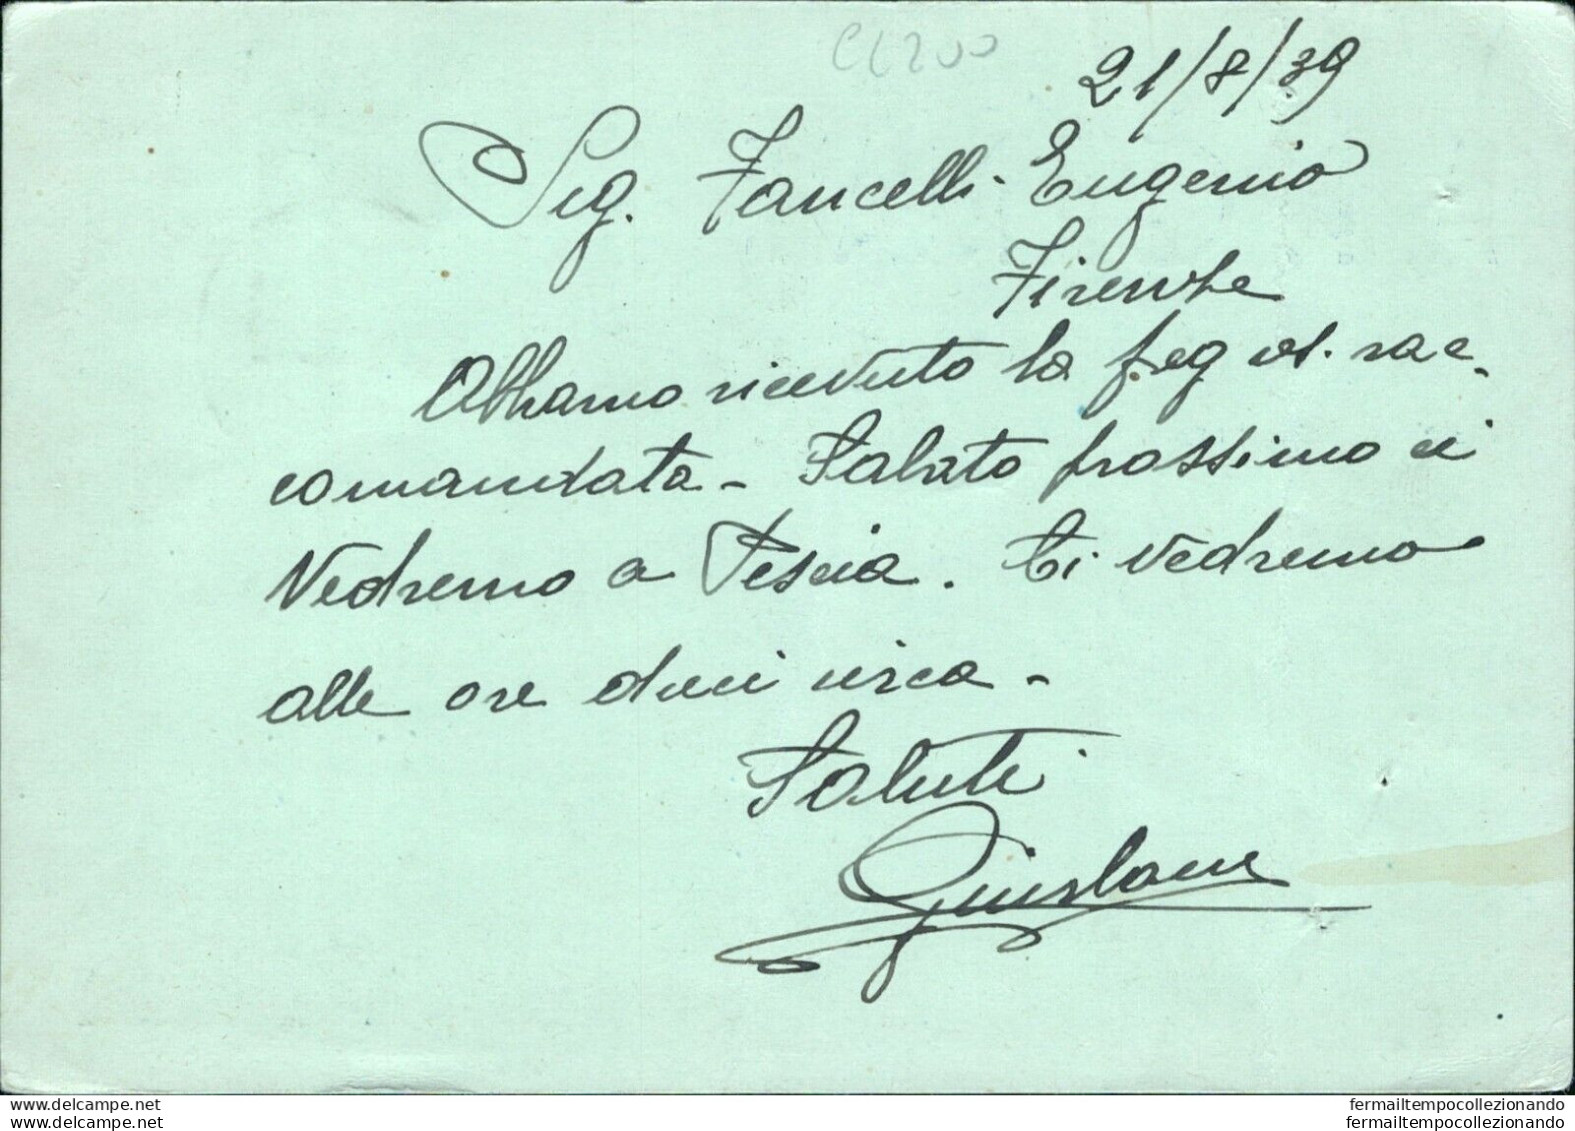 CC200
21/8/39
Sig. Fancelli Eugenio
Firenze
Abbiamo ricevuto la preg vs. rac-
comandata - Sabato prossimo ci
vedremo a Pescia. Ci vedremo
alle ore dieci circa -
Saluti
www.delcampe.net
fermailtempocollezionando
www.delcampe.net
fermailtempocollezionando